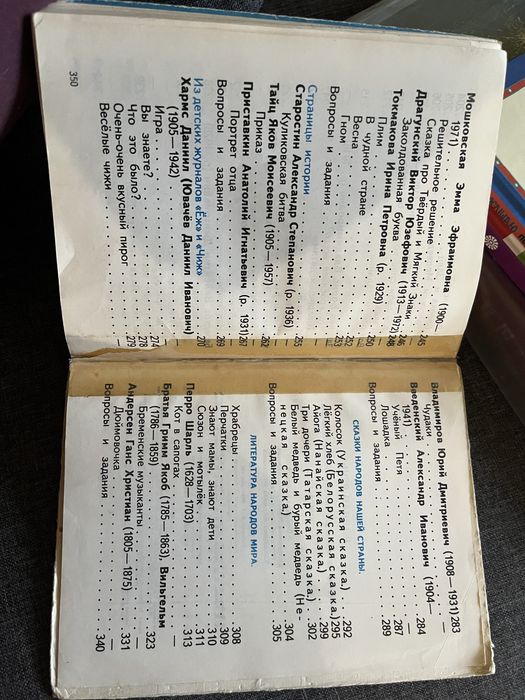 Мошковская Эмма Эфраимовна (1900—
1971) . . . .
Решительное решение . . . 245
Сказка про Твёрдый и Мягкий Знаки
Драгунский Виктор Юзефович (1913—1972) 246
Заколдованная буква . . . —
Токмакова Ирина Петровна (р. 1929)
Плим . . . —
В чудной стране . . . 250
Весна . . . 252
Гном . . . 253
Вопросы и задания
Страницы истории
Старостин Александр Степанович (р. 1936)
Куликовская битва . . . 255
Тайц Яков Моисеевич (1905—1957)
Приказ . . . 262
Приставкин Анатолий Игнатьевич (р. 1931) 267
Портрет отца . . . —
Вопросы и задания . . . 269
Из детских журналов «Ёж» и «Чиж» 270
Хармс Даниил (Ювачёв Даниил Иванович)
(1905—1942) . . . —
Игра . . . —
Вы знаете? . . . 274
Что это было? . . . 278
Очень-очень вкусный пирог . . . —
Весёлые чижи . . . 279
350
Владимиров Юрий Дмитриевич (1908—1931) 283
Чудаки . . . —
Введенский Александр Иванович (1904—
1941) . . . 284
Учёный Петя . . . —
Лошадка . . . 287
Вопросы и задания . . . 289
СКАЗКИ НАРОДОВ НАШЕЙ СТРАНЫ.
Колосок (Украинская сказка.) . . . 292
Лёгкий хлеб (Белорусская сказка.) 295
Айога (Нанайская сказка.) . . . 299
Три дочери (Татарская сказка.) . . . 302
Белый медведь и бурый медведь (Не-
нецкая сказка.) . . . 304
Вопросы и задания . . . 305
ЛИТЕРАТУРА НАРОДОВ МИРА.
Храбрецы . . . 308
Перчатки . . . 309
Знают мамы, знают дети . . . 310
Сюзон и мотылёк . . . 311
Перро Шарль (1628—1703) . . . 313
Кот в сапогах . . . —
Братья Гримм Якоб (1785—1863), Вильгельм
(1786—1859) . . . 323
Бременские музыканты . . . —
Андерсен Ганс Христиан (1805—1875) . . . 331
Дюймовочка . . . —
Вопросы и задания . . . 340